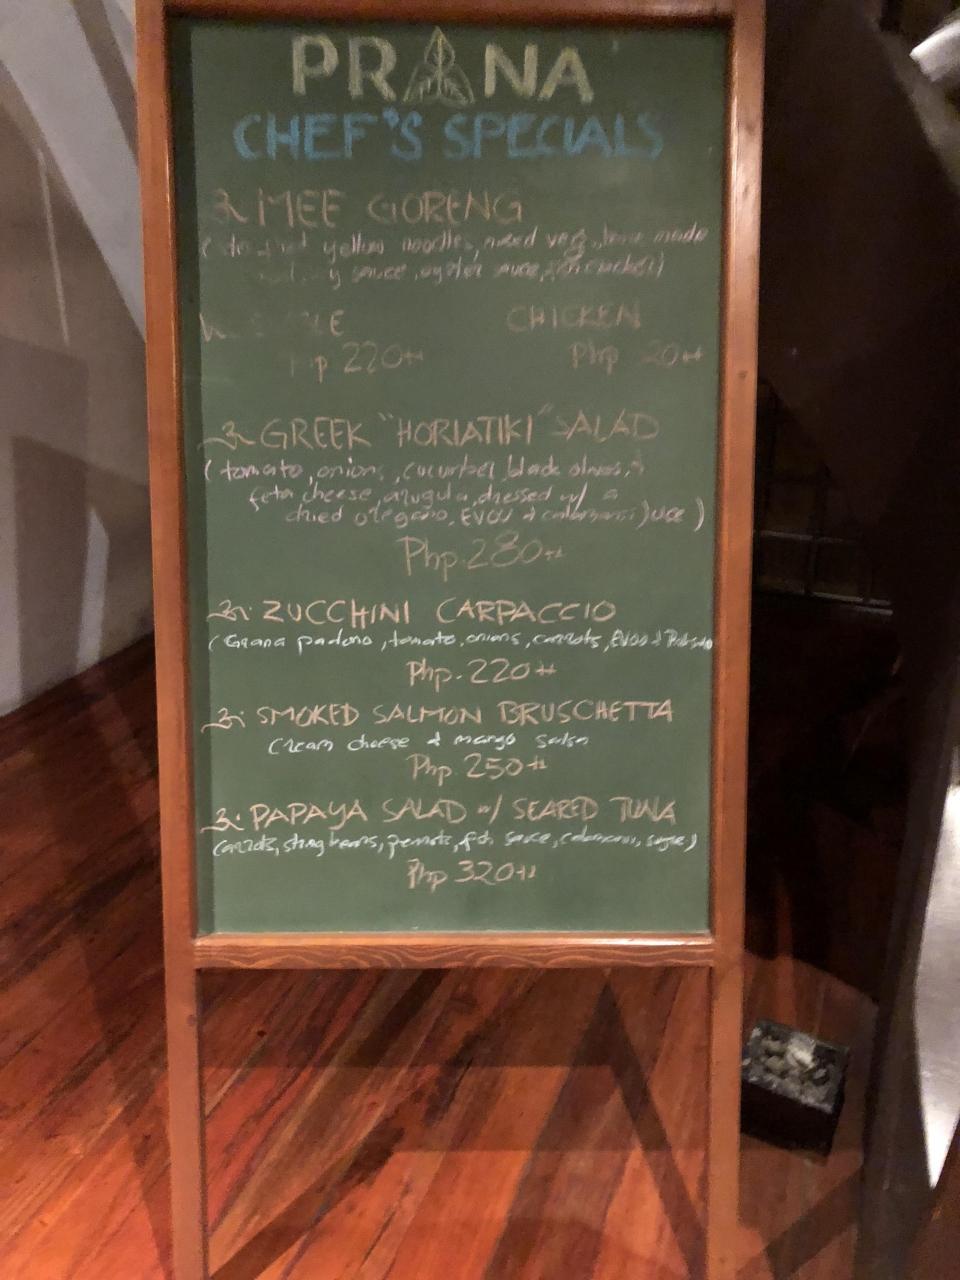 PRANA
CHEF'S SPECIALS
MEE GORENG
yellow noodles, mixed veg, home made
sauce, oyster sauce,
CHICKEN
220++ Php 20++
GREEK "HORIATIKI" SALAD
(tomato, onions, cucumber, black olives,
feta cheese, arugula, dressed w/ a
dried oregano, EVOO & calamansi juice)
Php. 280++
ZUCCHINI CARPACCIO
(Grana padano, tomato, onions, carrots, EVOO &
Php. 220++
SMOKED SALMON BRUSCHETTA
cream cheese & mango salsa
Php 250++
PAPAYA SALAD w/ SEARED TUNA
carrots, string beans, peanuts, fish sauce, calamansi, sugar)
Php 320++